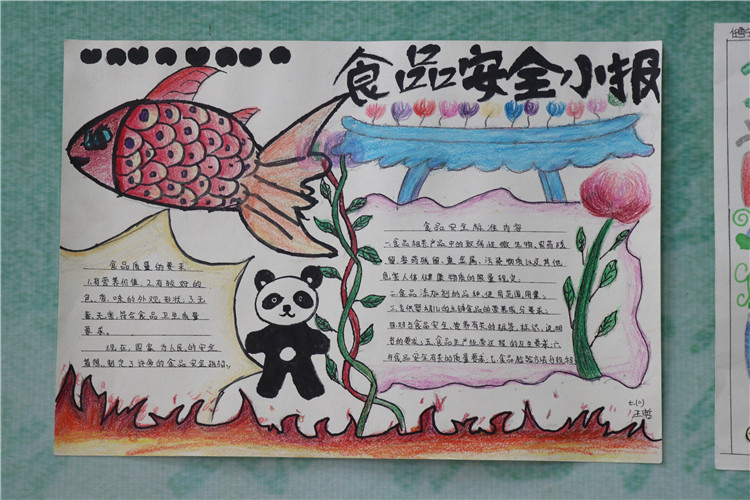 食品安全小报
食品质量的要求
1.有营养价值；2.有较好的
色、香、味的外观形状；3.无
毒、无害，符合食品卫生质量
要求。
现在，国家为人民的安全
着想，制定了许多的食品安全
食品安全标准内容
一、食品相关产品中的致病性微生物、农药残
留、兽药残留、重金属、污染物质以及其他
危害人体健康物质的限量规定；
二、食品添加剂的品种、使用范围、用量；
三、专供婴幼儿的主辅食品的营养成分要求；
四、对与食品安全、营养有关的标签、标识、说明
书的要求；五、食品生产经营过程的卫生要求；六、
与食品安全有关的质量要求；七、食品检验方法与规程
王哲